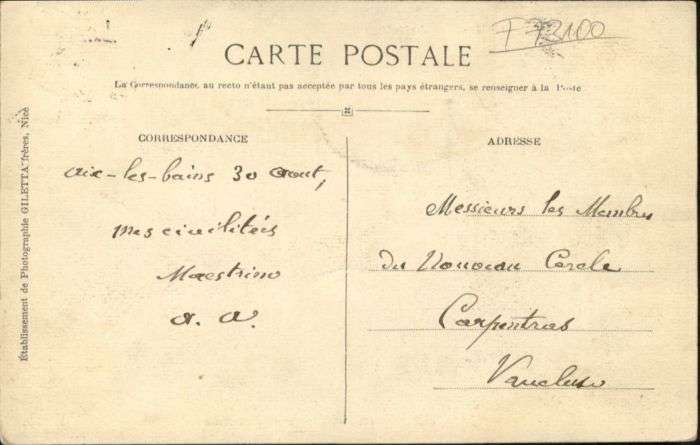 F 73100
CARTE POSTALE
La Correspondance au recto n'étant pas acceptée par tous les pays étrangers, se renseigner à la Poste
CORRESPONDANCE
Aix-les-bains 30 Aout,
mes civilités
Maestrino
ADRESSE
Messieurs les Membres
du Nouveau Cercle
Carpentras
Vaucluse
Établissement de Photographie GILETTA frères, Nice